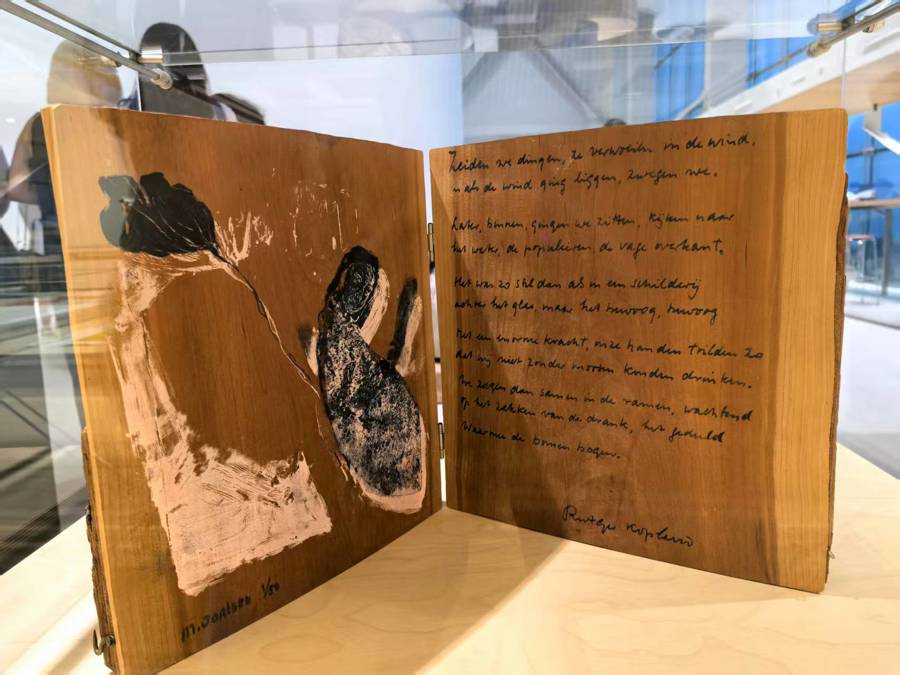 M. 1/50
Zeiden we dingen, ze verwoeien in de wind,
en als de wind ging liggen, zwegen we.
Later, binnen, gingen we zitten, kijken naar
het water, de populieren, de vage overkant.
Het was zo stil dan als in een schilderij
achter het glas, maar het bewoog, bewoog
Met een enorme kracht, onze handen trilden zo
dat wij niet zonder morsen konden drinken.
We zagen dan samen in de ramen, wachtend
op het zakken van de drank, het geduld
Waarmee de bomen bogen.
Rutger Kopland